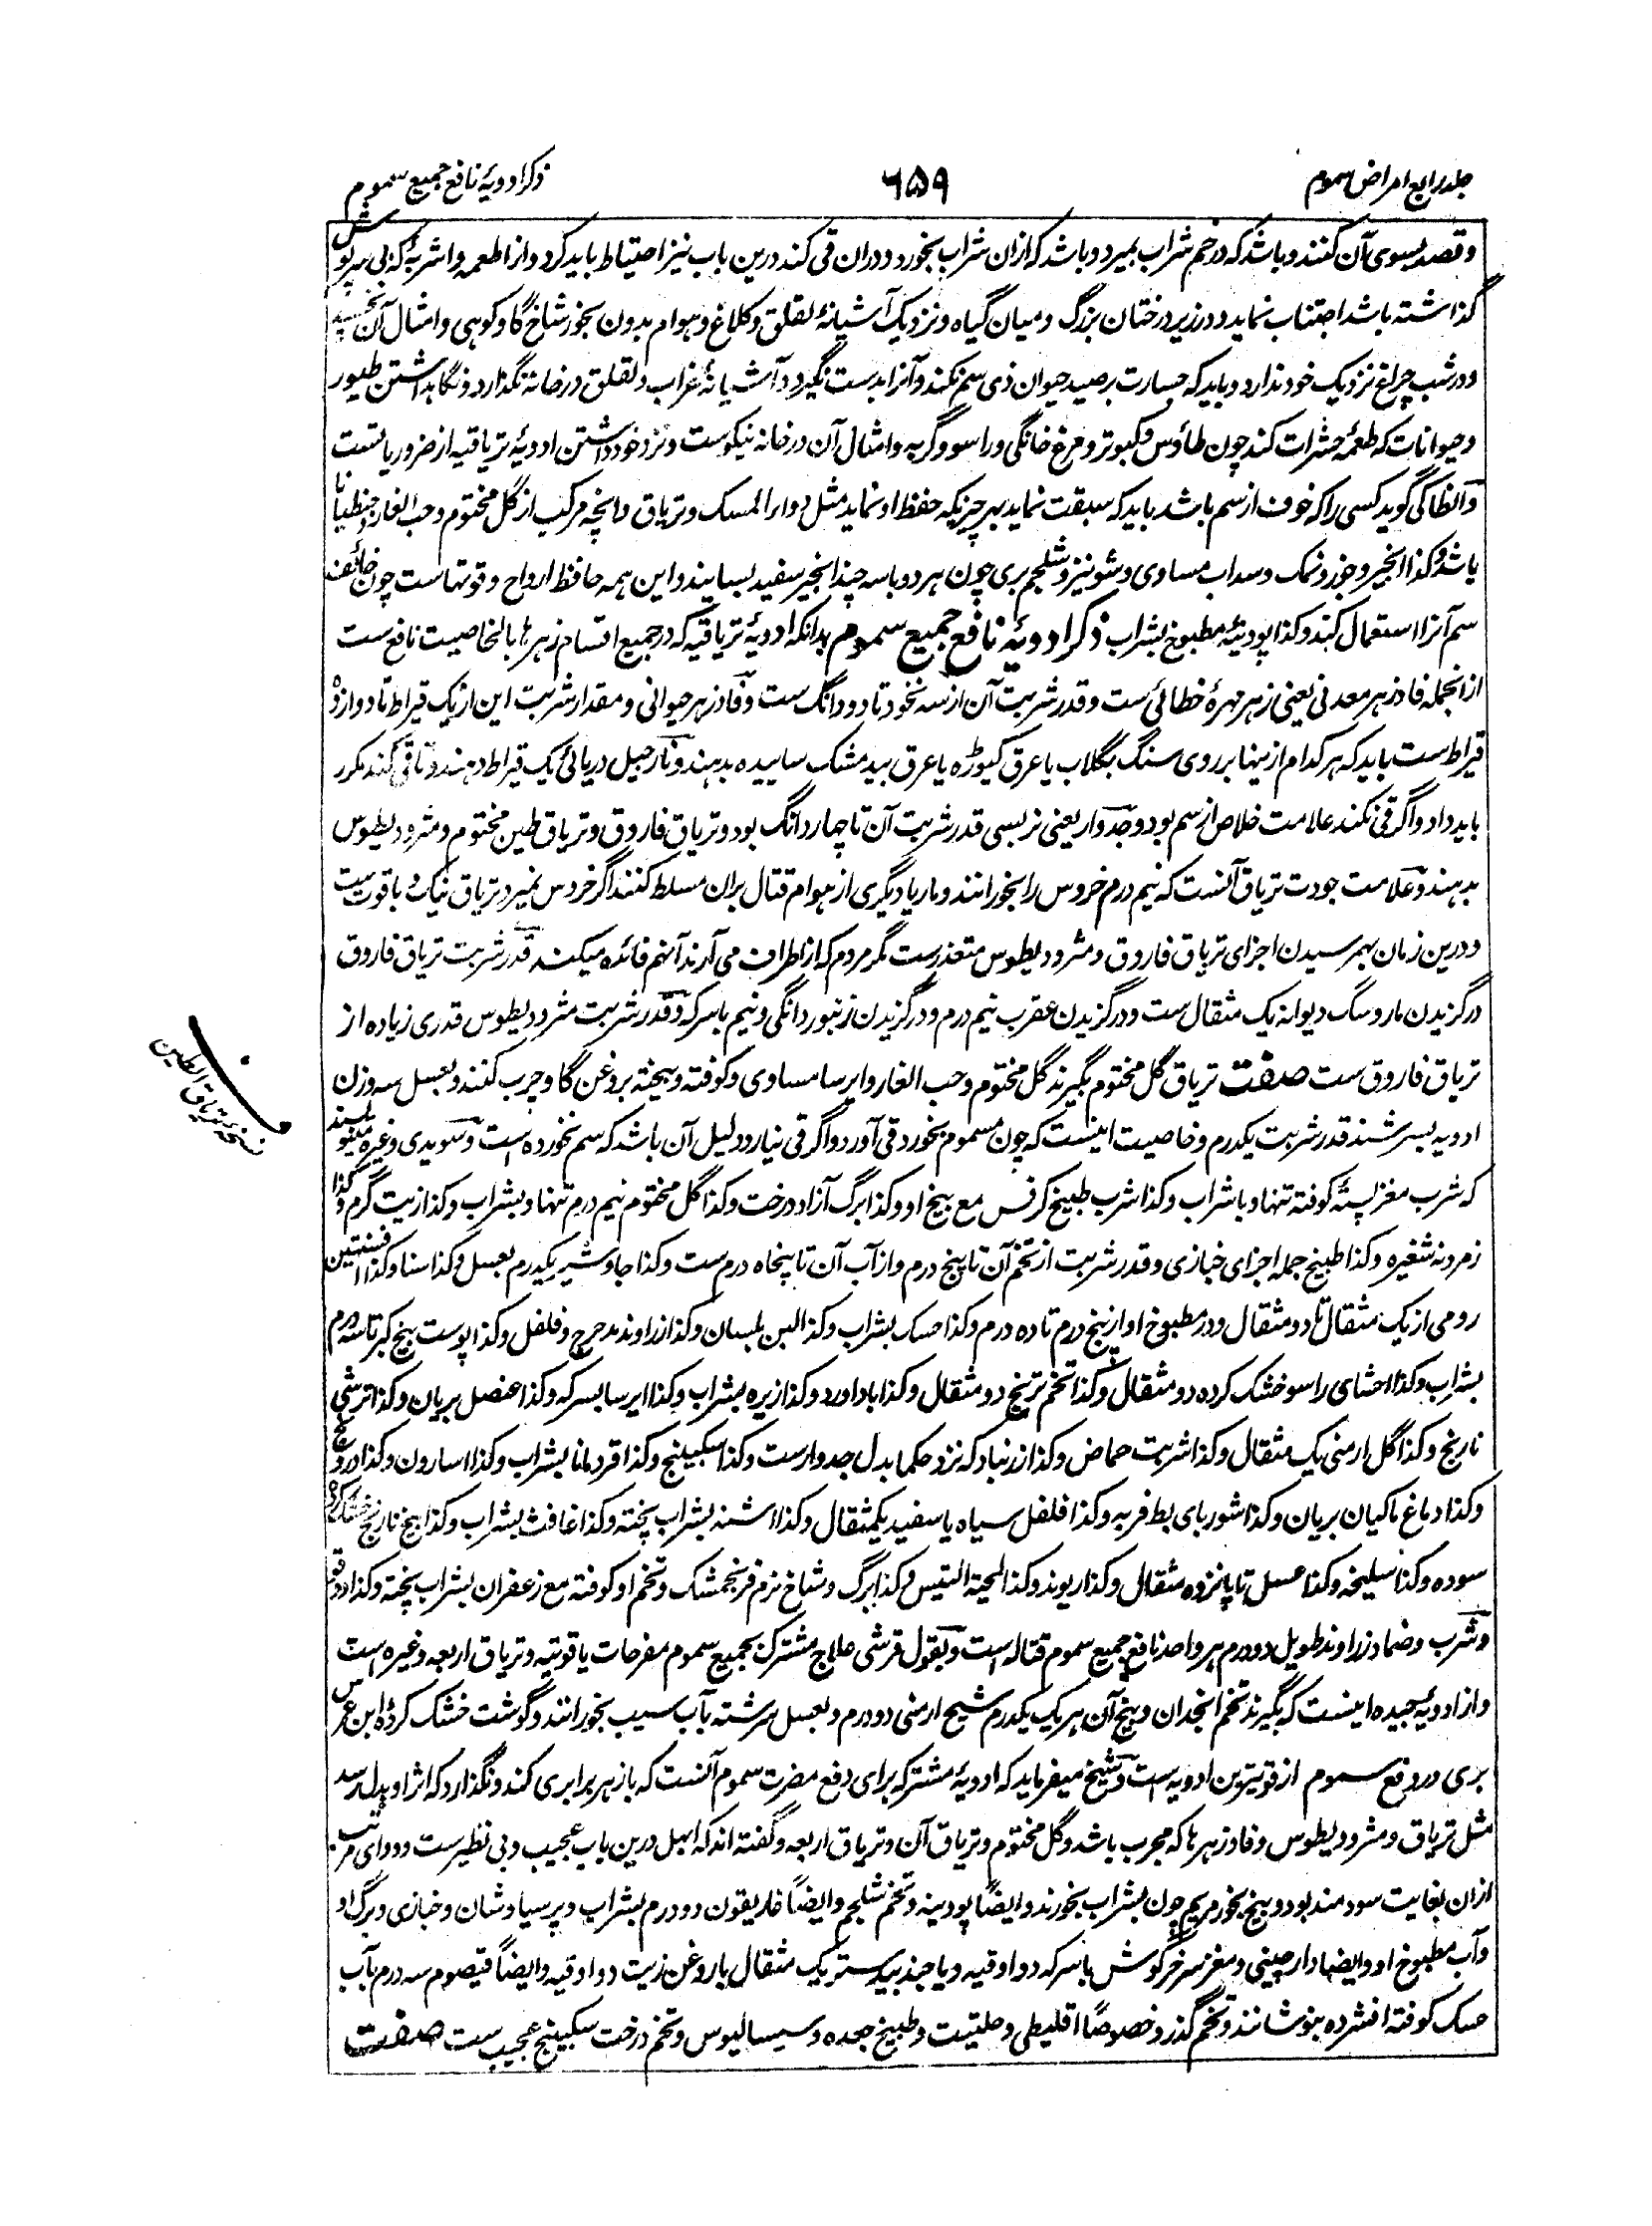 جلد رابع امراض سموم ۶۵۹ ذکر ادویۂ نافع جمیع سموم
و قصد بسوی آن کنند و باشد که در خم شراب بمیرد و باشد که ازان شراب بخورد و دران قی کند درین باب نیز احتیاط باید کرد و از اطعمه و اشربۂ که بی سرپوش
گذاشته باشد اجتناب نماید و در زیر درختان بزرگ و میان گیاه و نزدیک آشیانۂ لقلق و کلاغ و هوام بدون بخور شاخ گاو کوهی و امثال آن نخسپد
و در شب چراغ نزدیک خود ندارد و باید که جسارت بر صید حیوان ذی سم نکند و آنرا بدست نگیرد و آشیانۂ غراب و لقلق در خانه نگذارد و نگاهداشتن طیور
و حیوانات که طعمۂ حشرات کند چون طاؤس و کبوتر و مرغ خانگی و راسو و گربه و امثال آن در خانه نیکوست و نزد خود داشتن ادویۂ تریاقیه از ضروریاتست
و انطاکی گوید کسی را که خوف از سم باشد باید که سبقت نماید بهر چیزیکه حفظ او نماید مثل دواء المسک و تریاق و انچه مرکب از گل مختوم و حب الغار و جنطیانا
باشد و کذا انجیر و جوز و نمک و سداب مساوی و شونیز و شلجم بری چون هر دو با سه چند انجیر سفید بسایند و این همه حافظ ارواح و قوتهاست چون خائف
سم آنرا استعمال کند و کذا پودینۂ مطبوخ بشراب ذکر ادویۂ نافع جمیع سموم بدانکه ادویۂ تریاقیه که در جمیع اقسام زهرها بالخاصیت نافع ست
ازانجمله فادزهر معدنی یعنی زهر مهرۂ خطائی ست و قدر شربت آن از سه نخود تا دو دانگ ست و فادزهر حیوانی و مقدار شربت این از یک قیراط تا دوازده
قیراط ست باید که هر کدام ازینها بر روی سنگ بگلاب یا عرق کیوڑه یا عرق بیدمشک ساییده بدهند و نارجیل دریائی یک قیراط دهند و تا قی کند مکرر
باید داد و اگر قی نکند علامت خلاص از سم بود و جدوار یعنی نربسی قدر شربت آن تا چهار دانگ بود و تریاق فاروق و تریاق طین مختوم و مثرودیطوس
بدهند و علامت جودت تریاق آنست که نیم درم خروس را بخورانند و مار یا دیگری از هوام قتال بران مسلط کنند اگر خروس نمیرد تریاق نیک و باقوت ست
و درین زمان بهمرسیدن اجزای تریاق فاروق و مثرودیطوس متعذرست مگر مردم که از اطراف می آرند آنهم فائده میکند قدر شربت تریاق فاروق
در گزیدن مار و سگ دیوانه یک مثقال ست و در گزیدن عقرب نیم درم و در گزیدن زنبور دانگی و نیم با سرکه و قدر شربت مثرودیطوس قدری زیاده از
تریاق فاروق ست صفت تریاق گل مختوم بگیرند گل مختوم و حب الغار و ایرسا مساوی و کوفته و بیخته بروغن گاو چرب کنند و بعسل سه وزن
ادویه بسرشند قدر شربت یکدرم و خاصیت اینست که چون مسموم بخورد قی آورد و اگر قی نیارد دلیل آن باشد که سم نخورده است و سویدی و غیره مینویسند
که شرب مغز پستۂ کوفته تنها و با شراب و کذا شرب طبیخ کرفس مع بیخ او و کذا برگ آزاد درخت و کذا گل مختوم نیم درم تنها و بشراب و کذا زیت گرم و کذا
زمرد نه شعیره و کذا طبیخ جمله اجزای خبازی و قدر شربت از تخم آن تا پنج درم و از آب آن تا پنجاه درم ست و کذا جاوشیر یکدرم بعسل و کذا سنا و کذا افسنتین
رومی از یک مثقال تا دو مثقال و در مطبوخ او از پنج درم تا ده درم و کذا حسک بشراب و کذا لبن بلسان و کذا زراوند مدحرج و فلفل و کذا پوست بیخ کبر تا سه درم
بشراب و کذا احشای راسو خشک کرده دو مثقال و کذا تخم ترنج دو مثقال و کذا باداورد و کذا زیره بشراب و کذا ایرسا بسرکه و کذا عنصل بریان و کذا ترشی
نارنج و کذا گل ارمنی یک مثقال و کذا شربت حماض و کذا زرنباد که نزد حکما بدل جدوارست و کذا سکبینج و کذا قردمانا بشراب و کذا اسارون و کذا درونج
و کذا دماغ ماکیان بریان و کذا شوربای بط فربه و کذا فلفل سیاه یا سفید یکمثقال و کذا اشنه بشراب پخته و کذا غافث بشراب و کذا بیخ نارنج خشک کرده
سوده و کذا سلیخه و کذا عسل تا پانزده مثقال و کذا ریوند و کذا لحیة التیس و کذا برگ و شاخ نرم فرنجمشک و تخم او کوفته مع زعفران بشراب پخته و کذا دوقو
و شرب و ضماد زراوند طویل دو درم هر واحد نافع جمیع سموم قتاله است و بقول قرشی علاج مشترک بجمیع سموم مفرحات یاقوتیه و تریاق اربعه و غیره است
و از ادویۂ جیده اینست که بگیرند تخم انجدان و بیخ آن هر یک یکدرم شیح ارمنی دو درم و بعسل سرشته بآب سیب بخورانند و گوشت خشک کردۂ ابن عرس
بری در دفع سموم از قویترین ادویه است و شیخ میفرماید که ادویۂ مشترکه برای دفع مضرت سموم آنست که با زهر برابری کند و نگذارد که اثر او بدل رسد
مثل تریاق و مثرودیطوس و فادزهرها که مجرب باشد و گل مختوم و تریاق آن و تریاق اربعه و گفته اند که ابهل درین باب عجیب و بی نظیرست و دوای مرتب
ازان بغایت سودمند بود و بیخ بخور مریم چون بشراب بخورند و ایضاً پودینه و تخم شلجم و ایضاً غاریقون دو درم بشراب و پرسیاوشان و خبازی و برگ او
و آب مطبوخ او و ایضا دارچینی و مغز سر خرگوش با سرکه دو اوقیه و یا جندبیدستر یک مثقال با روغن زیت دو اوقیه و ایضاً قیصوم سه درم بآب
حسک کوفته افشرده بنوشانند و تخم گذر و خصوصاً اقلیطی و حلتیت و طبیخ جعده و سیسالیوس و تخم درخت سکبینج عجیب ست صفت
نسخۂ تریاق الطین